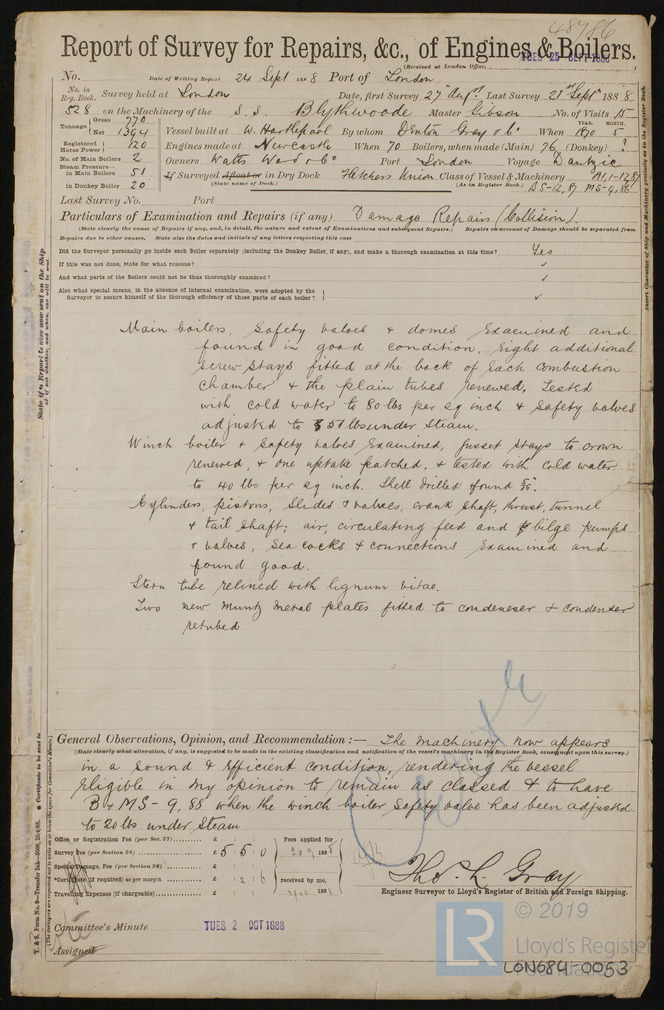 48786
Report of Survey for Repairs, &c., of Engines & Boilers.
TUES 25 SEPT 1888
(Received at London Office,
No. Date of Writing Report 24 Sept 1888 Port of London
No. in Reg. Book. Survey held at London Date, first Survey 27th Augt Last Survey 21st Sept 1888
528 on the Machinery of the S.S. Blythwoode Master Gibson No. of Visits 15
Tonnage Gross 770 Net 1394 Vessel built at W. Hartlepool By whom Denton Gray & Co When YEAR. 1870 MONTH. 5
Registered Horse Power 120 Engines made at Newcastle When 70 Boilers, when made (Main) 76 (Donkey) ?
No. of Main Boilers 2 Owners Watts Ward & Co Port London Voyage Dantzic
Steam Pressure in Main Boilers 51 If Surveyed Afloat or in Dry Dock Fletchers Union Class of Vessel & Machinery
in Donkey Boiler 20 (State name of Dock.) (As in Register Book.) MS-9,86
Last Survey No. Port
Particulars of Examination and Repairs (if any) Damage Repairs (Collision).
(State clearly the cause of Repairs if any, and, in detail, the nature and extent of Examinations and subsequent Repairs.) Repairs on account of Damage should be separated from
Repairs due to other causes. State also the dates and initials of any letters respecting this case
Did the Surveyor personally go inside each Boiler separately (including the Donkey Boiler, if any), and make a thorough examination at this time? Yes
If this was not done, state for what reasons?
And what parts of the Boilers could not be thoroughly examined?
Also what special means, in the absence of internal examination, were adopted by the
Surveyor to assure himself of the thorough efficiency of those parts of each boiler?
Main boilers, Safety valves & domes Examined and
found in good condition, Eight additional
screw stays fitted at the back of each combustion
chamber & the plain tubes renewed, Tested
with cold water to 80 lbs per sq inch & safety valves
adjusted to 51 lbs under steam.
Winch boiler & Safety valves Examined, gusset stays to crown
renewed, & one uptake patched, & tested with cold water
to 40 lbs per sq inch. Shell drilled & found
Cylinders, pistons, slides & valves, crank shaft, thrust, tunnel
& tail shaft; air, circulating feed and bilge pumps
& valves, Sea cocks & connections Examined and
found good.
Stern tube relined with lignum vitae.
Two new Muntz Metal plates fitted to condeneser & condenser
retubed
General Observations, Opinion, and Recommendation:— The machinery now appears
(State clearly what alteration, if any, is suggested to be made in the existing classification and notification of the vessel's machinery in the Register Book, consequent upon this survey.)
in a sound & Efficient condition, rendering the vessel
Eligible in my opinion to remain as classed & to have
B & MS - 9,88 when the winch boiler Safety valve has been adjusted
to 20 lbs under Steam
Office or Registration Fee (per Sec. 27) £ : :
Survey Fee (per Section 28) £ 5 : 5 : 0
Special Damage, Fee (per Section 28) £ : :
*Certificate (if required) as per margin £ : 2 : 6
Travelling Expenses (if chargeable) £ : :
Fees applied for
188
received by me,
188
Thos. L. Gray
Engineer Surveyor to Lloyd's Register of British and Foreign Shipping.
Committee's Minute TUES 2 OCT 1888
Assigned
State if a Report is also now sent on the Ship
or if not whether, and when, one will be sent
T. & S. Form No. 9—Transfer Ink.—5000, 25/4/88.
* Certificate to be sent to
Insert Character of Ship and Machinery precisely as in the Register Book.
LR
© 2019
Lloyd's Register
Foundation
LON684-0053